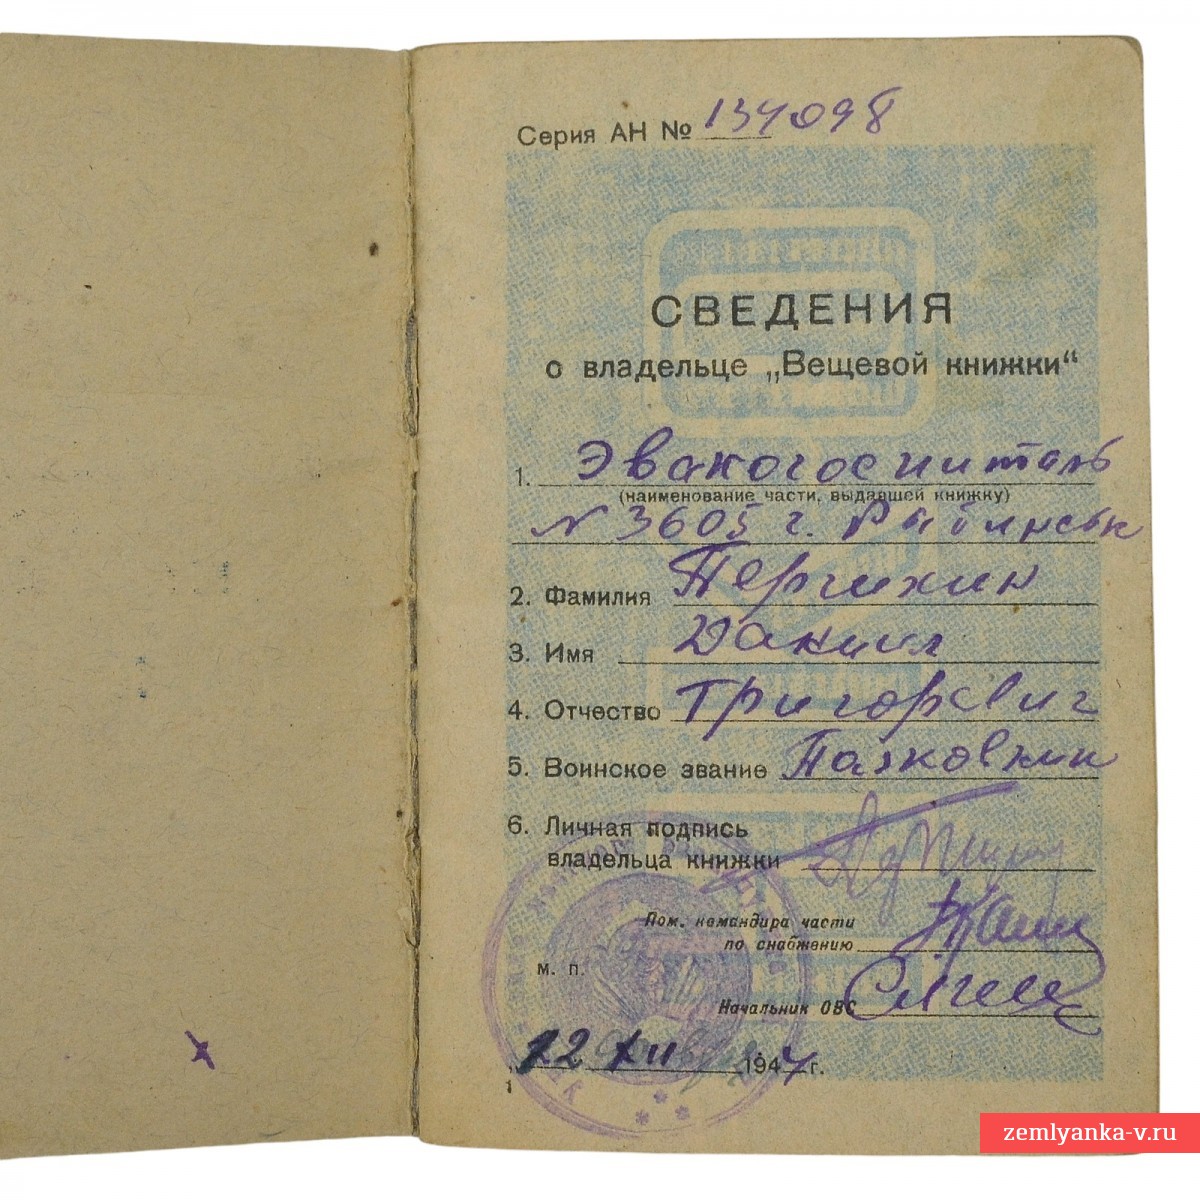 Серия АН № 134098
СВЕДЕНИЯ
о владельце „Вещевой книжки“
1. Эвакогоспиталь
(наименование части, выдавшей книжку)
N 3605 г. Рыбинск
2. Фамилия
3. Имя Даниил
4. Отчество Григоревич
5. Воинское звание Полковник
6. Личная подпись
владельца книжки
Пом. командира части
по снабжению
м. п.
Начальник ОВС
12 XII 1944 г.
1
zemlyanka-v.ru